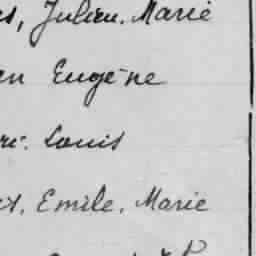 Julien. Marie
Eugène
Louis
Emile. Marie